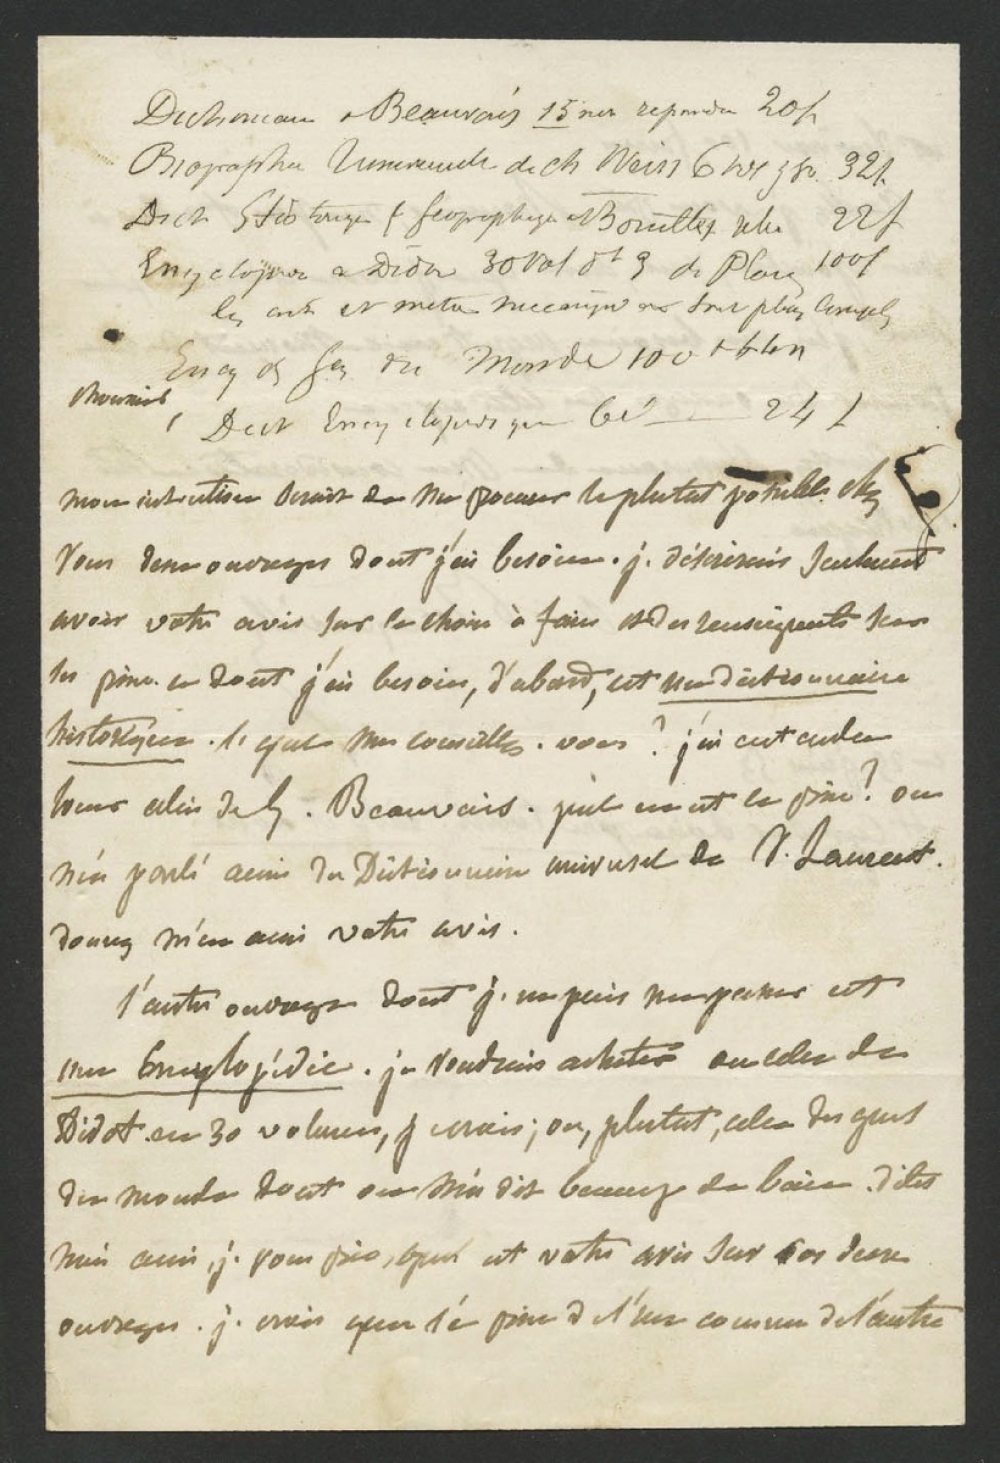 Dictionnaire de Beauvais 15 20f
Biographie Universelle de Ch Weiss 6 vol g 8o. 32f
Dict historique & geographique Bouillet 22f
Encyclopedie de Didot 30 vol et 3 de Planc 100f
les arts et metiers mecanique ne sont plus
Ency des gens du Monde 100
Dict Encyclopedique 24 f
mon intention serait de me procurer le plutot possible chez
vous deux ouvrages dont j'ai besoin. je désirerais seulement
avoir votre avis sur le choix à faire et des renseignements sur
les prix. ce dont j'ai besoin, d'abord, est un dictionnaire
historique. le quel me conseillez-vous? j'ai entendu
louer celui de Beauvais. quel en est le prix? on
m'a parlé aussi du Dictionnaire universel de St. Laurent.
donnez m'en aussi votre avis.
l'autre ouvrage dont je ne puis me passer est
une Encyclopédie. je voudrais acheter ou celle de
Didot en 30 volumes, je crois; ou, plutot, celle des gens
du monde dont on m'a dit beaucoup de bien. dites
moi aussi, je vous prie, quel est votre avis sur ces deux
ouvrages. je crois que le prix de l'un comme de l'autre